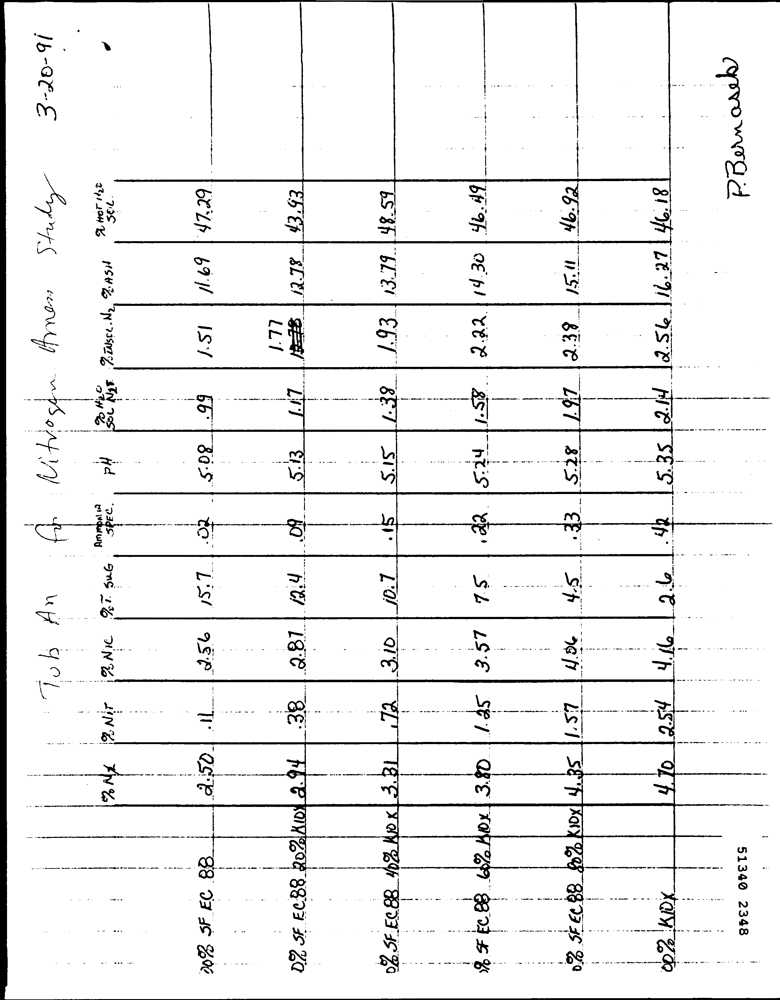 Tob An for Nitrogen Amen Study 3-20-91
% N2 % NIT % NIC % T. SUG AMMONIA SPEC. PH % H2O SOL N2 % INSOL. N2 % ASH % HOT H2O SOL.
00% SF EC 88 2.50 .11 2.56 15.7 .02 5.08 .99 1.51 11.69 47.29
0% SF EC 88 20% KIDX 2.94 .38 2.87 12.4 .09 5.13 1.17 1.77 12.78 43.93
0% SF EC 88 40% KIDX 3.31 .72 3.10 10.7 .15 5.15 1.38 1.93 13.79 48.59
0% SF EC 88 60% KIDX 3.80 1.25 3.57 7.5 .22 5.24 1.58 2.22 14.30 46.49
0% SF EC 88 80% KIDX 4.35 1.57 4.06 4.5 .33 5.28 1.97 2.38 15.11 46.92
00% KIDX 4.70 2.54 4.16 2.6 .42 5.35 2.14 2.56 16.27 46.18
P. Bernasek
51340 2348